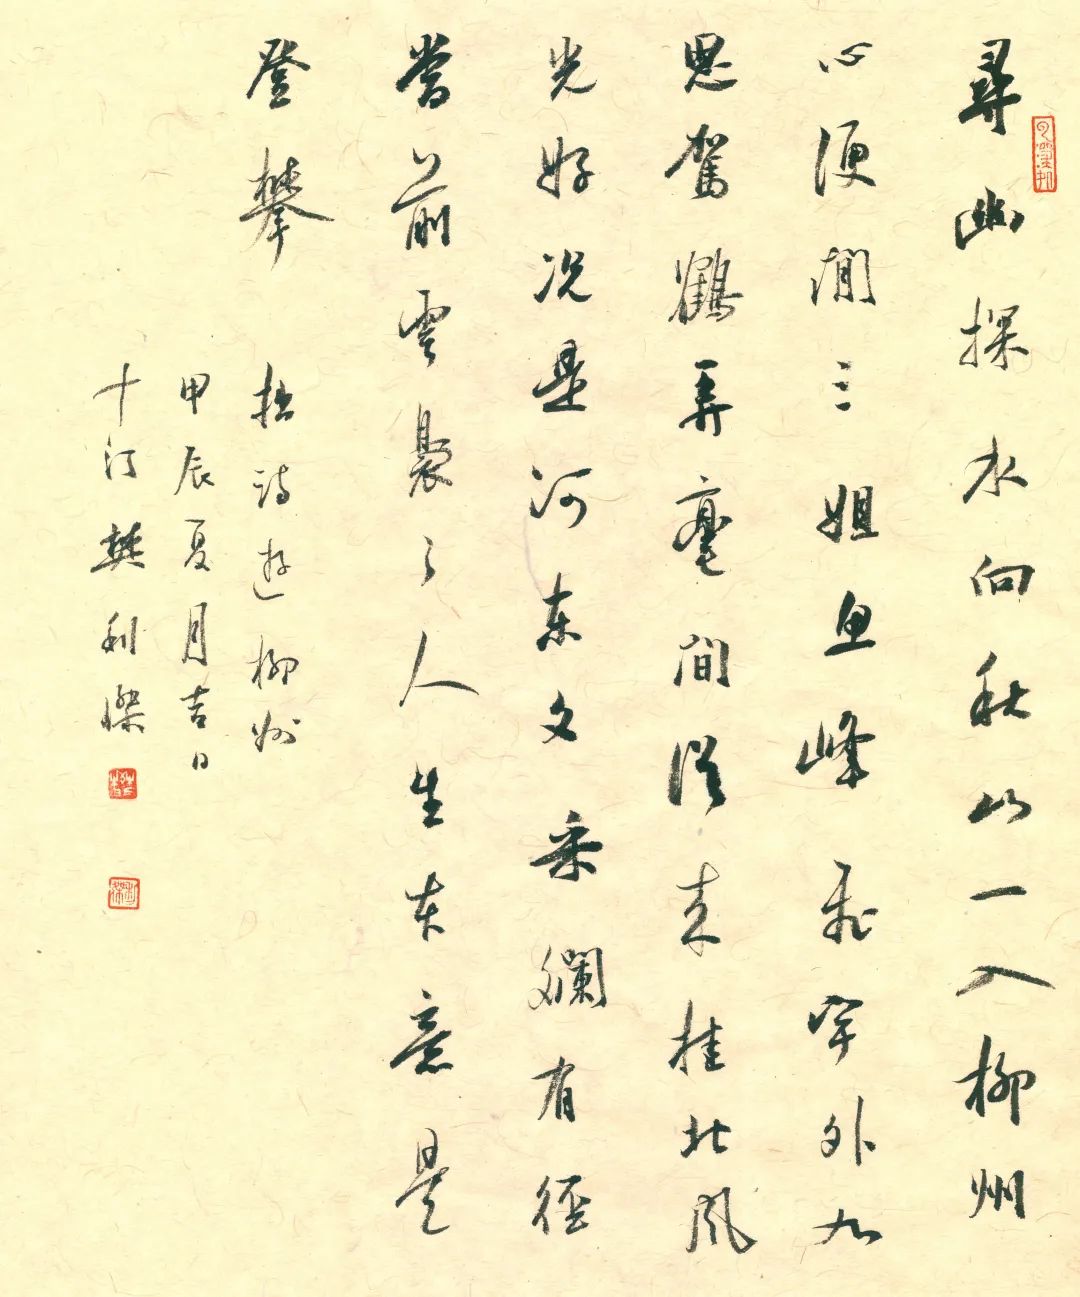 尋幽探水向秋山一入柳州
心便閒三姐魚峰飛穹外九
思駕鶴弄毫間從來桂北風
光好況是河東文采斕有徑
當前雲裊々人生本意是
登攀
拙詩遊柳州
甲辰夏月吉日
十汀樊利傑